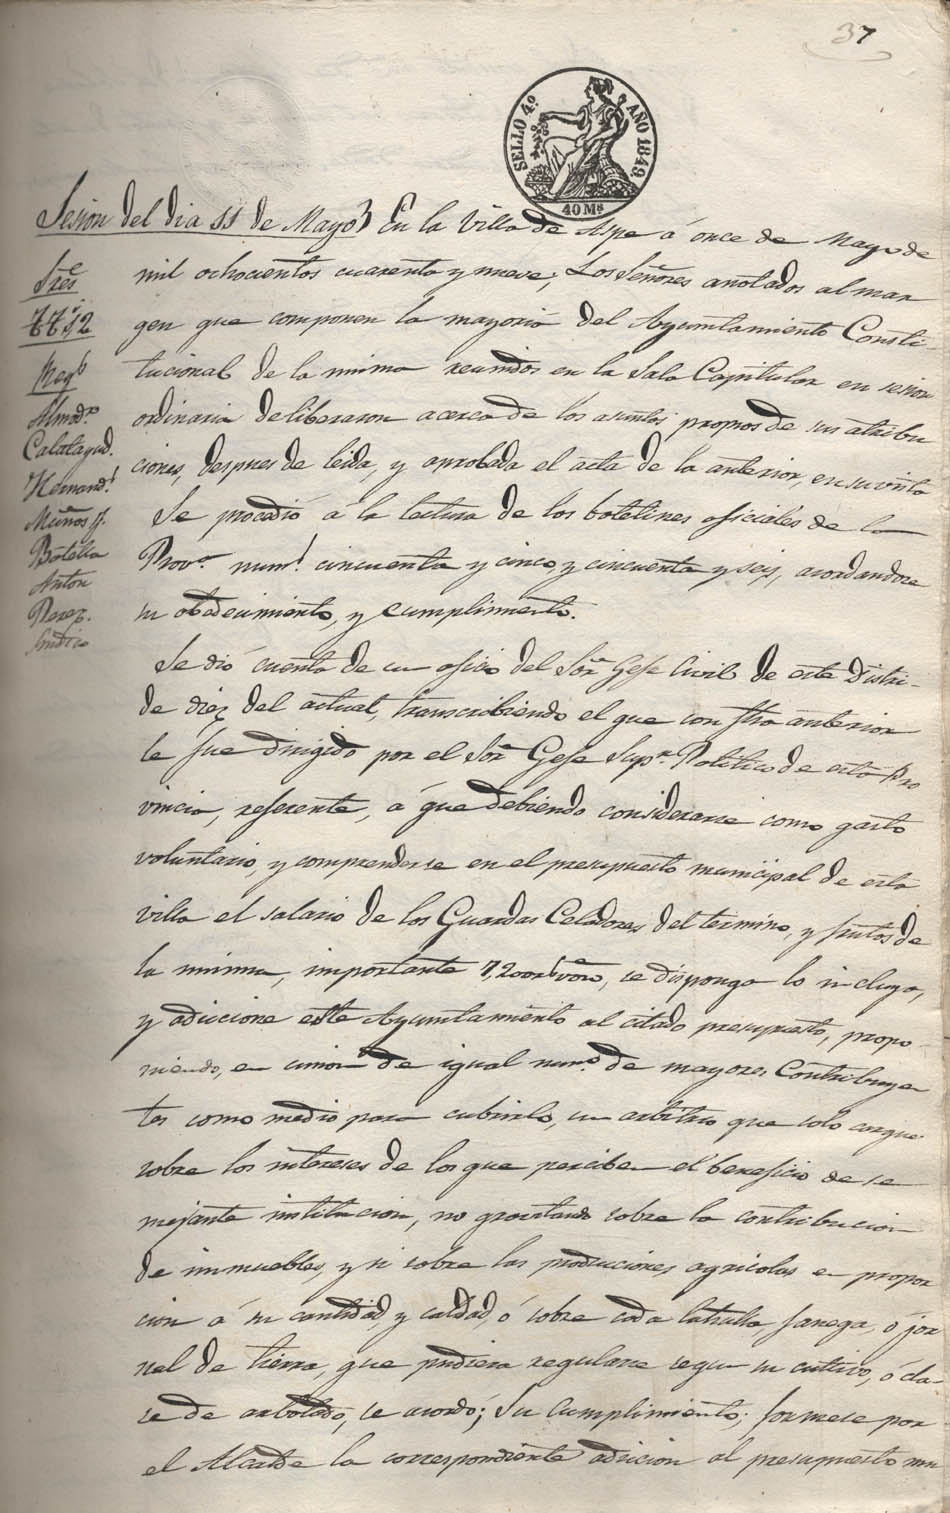 37
SELLO 4º AÑO 1849.
40 Ms
Sesion del dia 11 de Mayo} En la Villa de Aspe á once de Mayo de
Sres
Regs
Almodr
Calatayud.
Hernandz
Muños
Botella
Anton
Perez.
Sindico
mil ochocientos cuarenta y nueve; Los Señores anotados al mar
gen que componen la mayoria del Ayuntamiento Consti-
tucional de la misma reunidos en la Sala Capitular en sesion
ordinaria deliberaron acerca de los asuntos propios de sus atribu
ciones, despues de leida, y aprobada el acta de la anterior, en su vista
Se procedió á la lectura de los boletines oficiales de la
Prova nums cincuenta y cinco, y cincuenta y seis, acordandose
su obedecimiento, y cumplimiento.
Se dió cuenta de un oficio del Sor Gefe Civil de este Distri-
de diez del actual, transcribiendo el que con fha anterior
le fue dirigido por el Sor Gefe Supr Politico de esta Pro
vincia, referente, á que debiendo considerarse como gasto
voluntario, y comprenderse en el presupuesto municipal de esta
villa el salario de los Guardas Celadores del termino, y frutos de
la misma, importante 7,200 rs von, se disponga lo incluya,
y adiccione este Ayuntamiento al citado presupuesto, propo
niendo, en union de igual numo de mayores Contribuyen
tes como medio para cubrirlo, un arbitrio que solo cargue
sobre los intereses de los que perciben el beneficio de se
mejante institucion, no gravitando sobre la contribucion
de inmuebles, y si sobre las producciones agricolas en propor
cion á su cantidad, y calidad, ó sobre cada tahulla, fanega, ó jor
nal de tierra, que pudiera regularse segun su cultivo, ó cla-
se de arbolado, se acordó; Su Cumplimiento; formese por
el Alcalde la correspondiente adicion al presupuesto mu